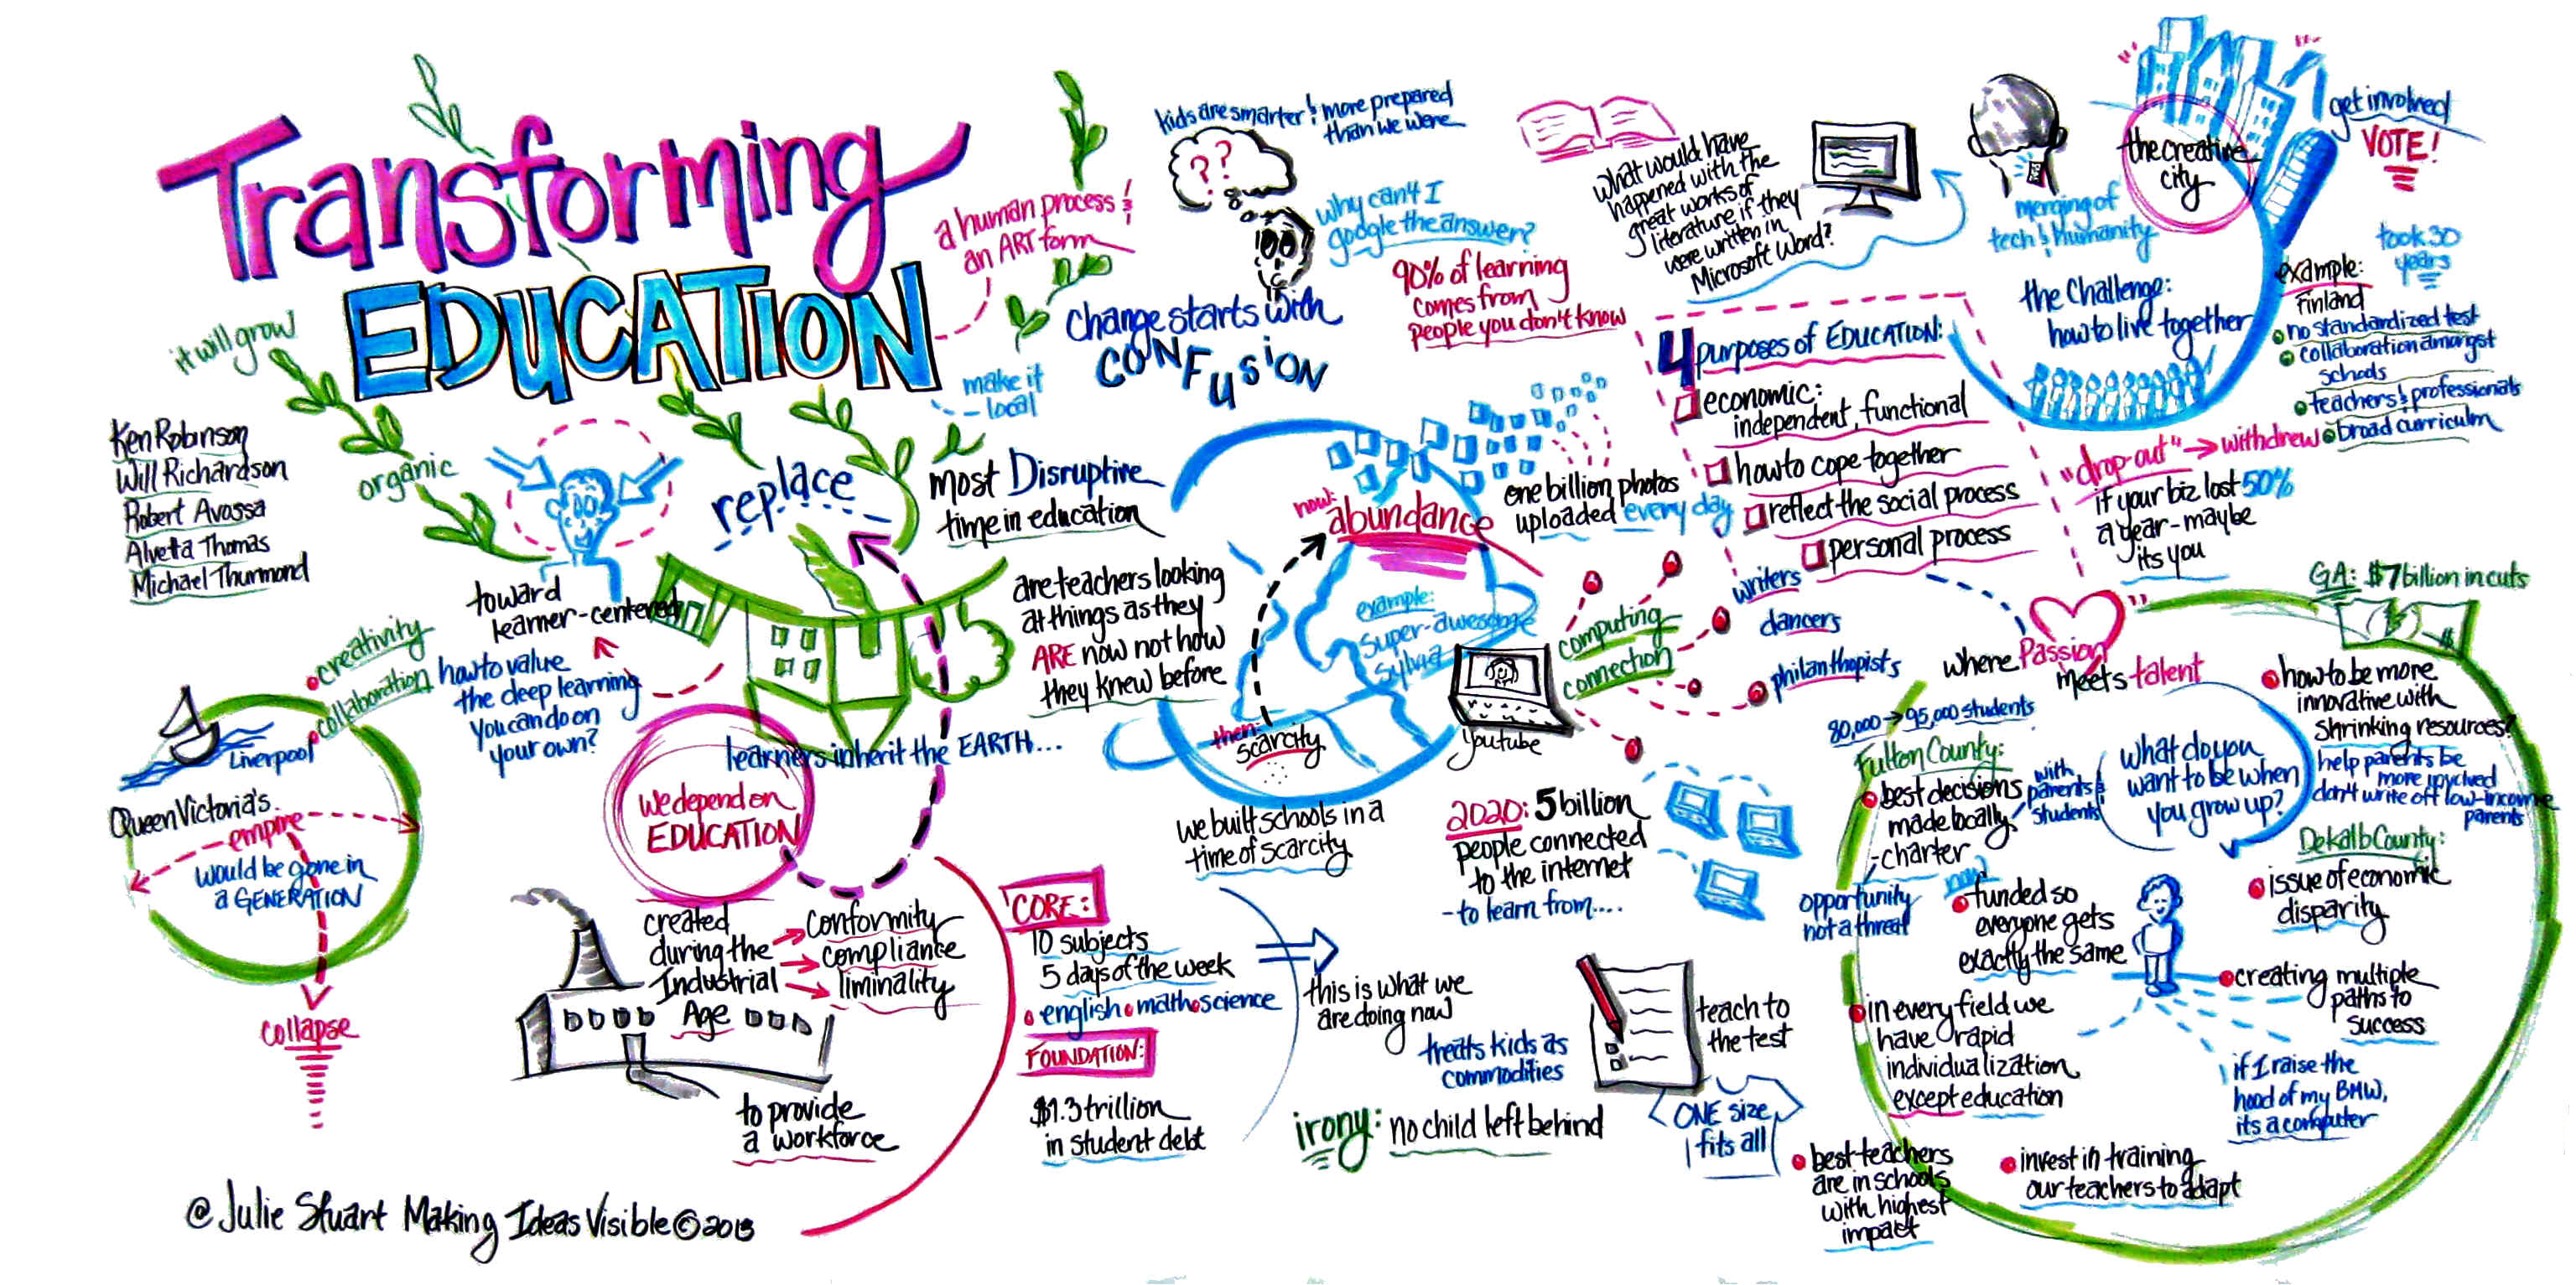 Transforming
EDUCATION
a human process &
an ART form
it will grow
organic
make it
local
Ken Robinson
Will Richardson
Robert Avossa
Alvetta Thomas
Michael Thurmond
toward
learner-centered
how to value
the deep learning
you can do on
your own?
creativity
collaboration
Liverpool
Queen Victoria's
empire
would be gone in
a GENERATION
collapse
replace
learners inherit the EARTH...
We depend on
EDUCATION
created
during the
Industrial
Age
conformity
compliance
liminality
to provide
a workforce
@ Julie Stuart Making Ideas Visible © 2013
most Disruptive
time in education
are teachers looking
at things as they
ARE now not how
they knew before
kids are smarter & more prepared
than we were
??
why can't I
google the answer?
change starts with
CONFUSION
90% of learning
comes from
people you don't know
now:
abundance
one billion photos
uploaded every day
example:
super-awesome
sylvia
then:
scarcity
youtube
we built schools in a
time of scarcity
computing
connection
writers
dancers
philanthropists
2020: 5 billion
people connected
to the internet
- to learn from....
'CORE:
10 subjects
5 days of the week
english math science
FOUNDATION:
$1.3 trillion
in student debt
this is what we
are doing now
treats kids as
commodities
irony: no child left behind
teach to
the test
ONE size
fits all
what would have
happened with the
great works of
literature if they
were written in
Microsoft Word?
merging of
tech & Humanity
the creative
city
get involved
VOTE!
the Challenge:
how to live together
took 30
years
example:
Finland
no standardized test
collaboration amongst
schools
teachers & professionals
broad curriculum
4 purposes of EDUCATION:
economic:
independent, functional
how to cope together
reflect the social process
personal process
"drop-out" → withdrew
if your biz lost 50%
a year - maybe
its you
where Passion
meets talent
GA: $7 billion in cuts
$
80,000 → 95,000 students
Fulton County:
best decisions
made locally
with
parents &
students
- charter
opportunity
not a threat
now
funded so
everyone gets
exactly the same
in every field we
have rapid
individualization
except education
best teachers
are in schools
with highest
impact
invest in training
our teachers to adapt
what do you
want to be when
you grow up?
how to be more
innovative with
shrinking resources?
help parents be
more involved
don't write off low-income
parents
Dekalb County:
issue of economic
disparity
creating multiple
paths to
success
if I raise the
hood of my BMW,
its a computer